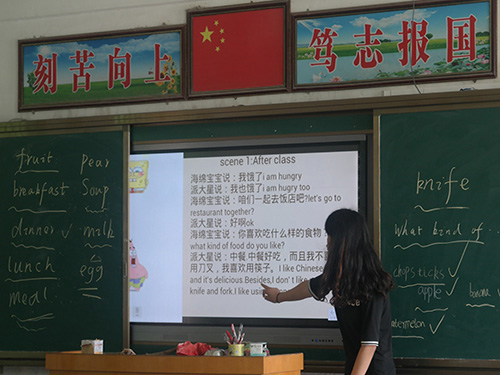 刻苦向上
笃志报国
fruit pear
breakfast Soup
dinner milk
lunch egg
meal
scene 1:After class
海绵宝宝说：我饿了i am hungry
派大星说：我也饿了i am hugry too
海绵宝宝说：咱们一起去饭店吧?let's go to
restaurant together?
派大星说：好啊ok
海绵宝宝说：你喜欢吃什么样的食物
what kind of food do you like?
派大星说：中餐,中餐好吃，而且我不
用刀叉，我喜欢用筷子。I like Chinese
and it's delicious.Besides,I don't like
knife and fork.I like usin
knife
what kind of ...
chopsticks
apple banana
watermelon